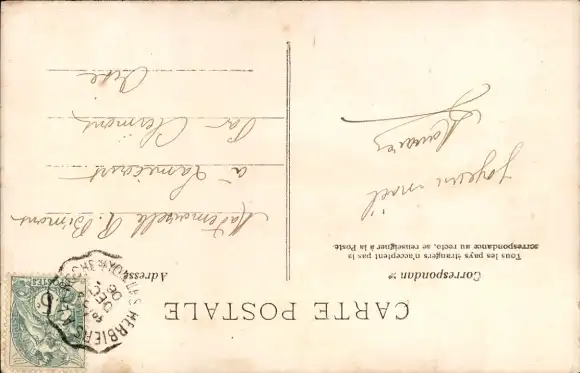 CARTE POSTALE
Correspondance
Tous les pays étrangers n'acceptent pas la
correspondance au recto, se renseigner à la Poste.
Joyeux noël
Adresse
Mademoiselle R. Bimont
à
Par Clermont
Oise
HERBIERS
DEC
06
POSTES
5